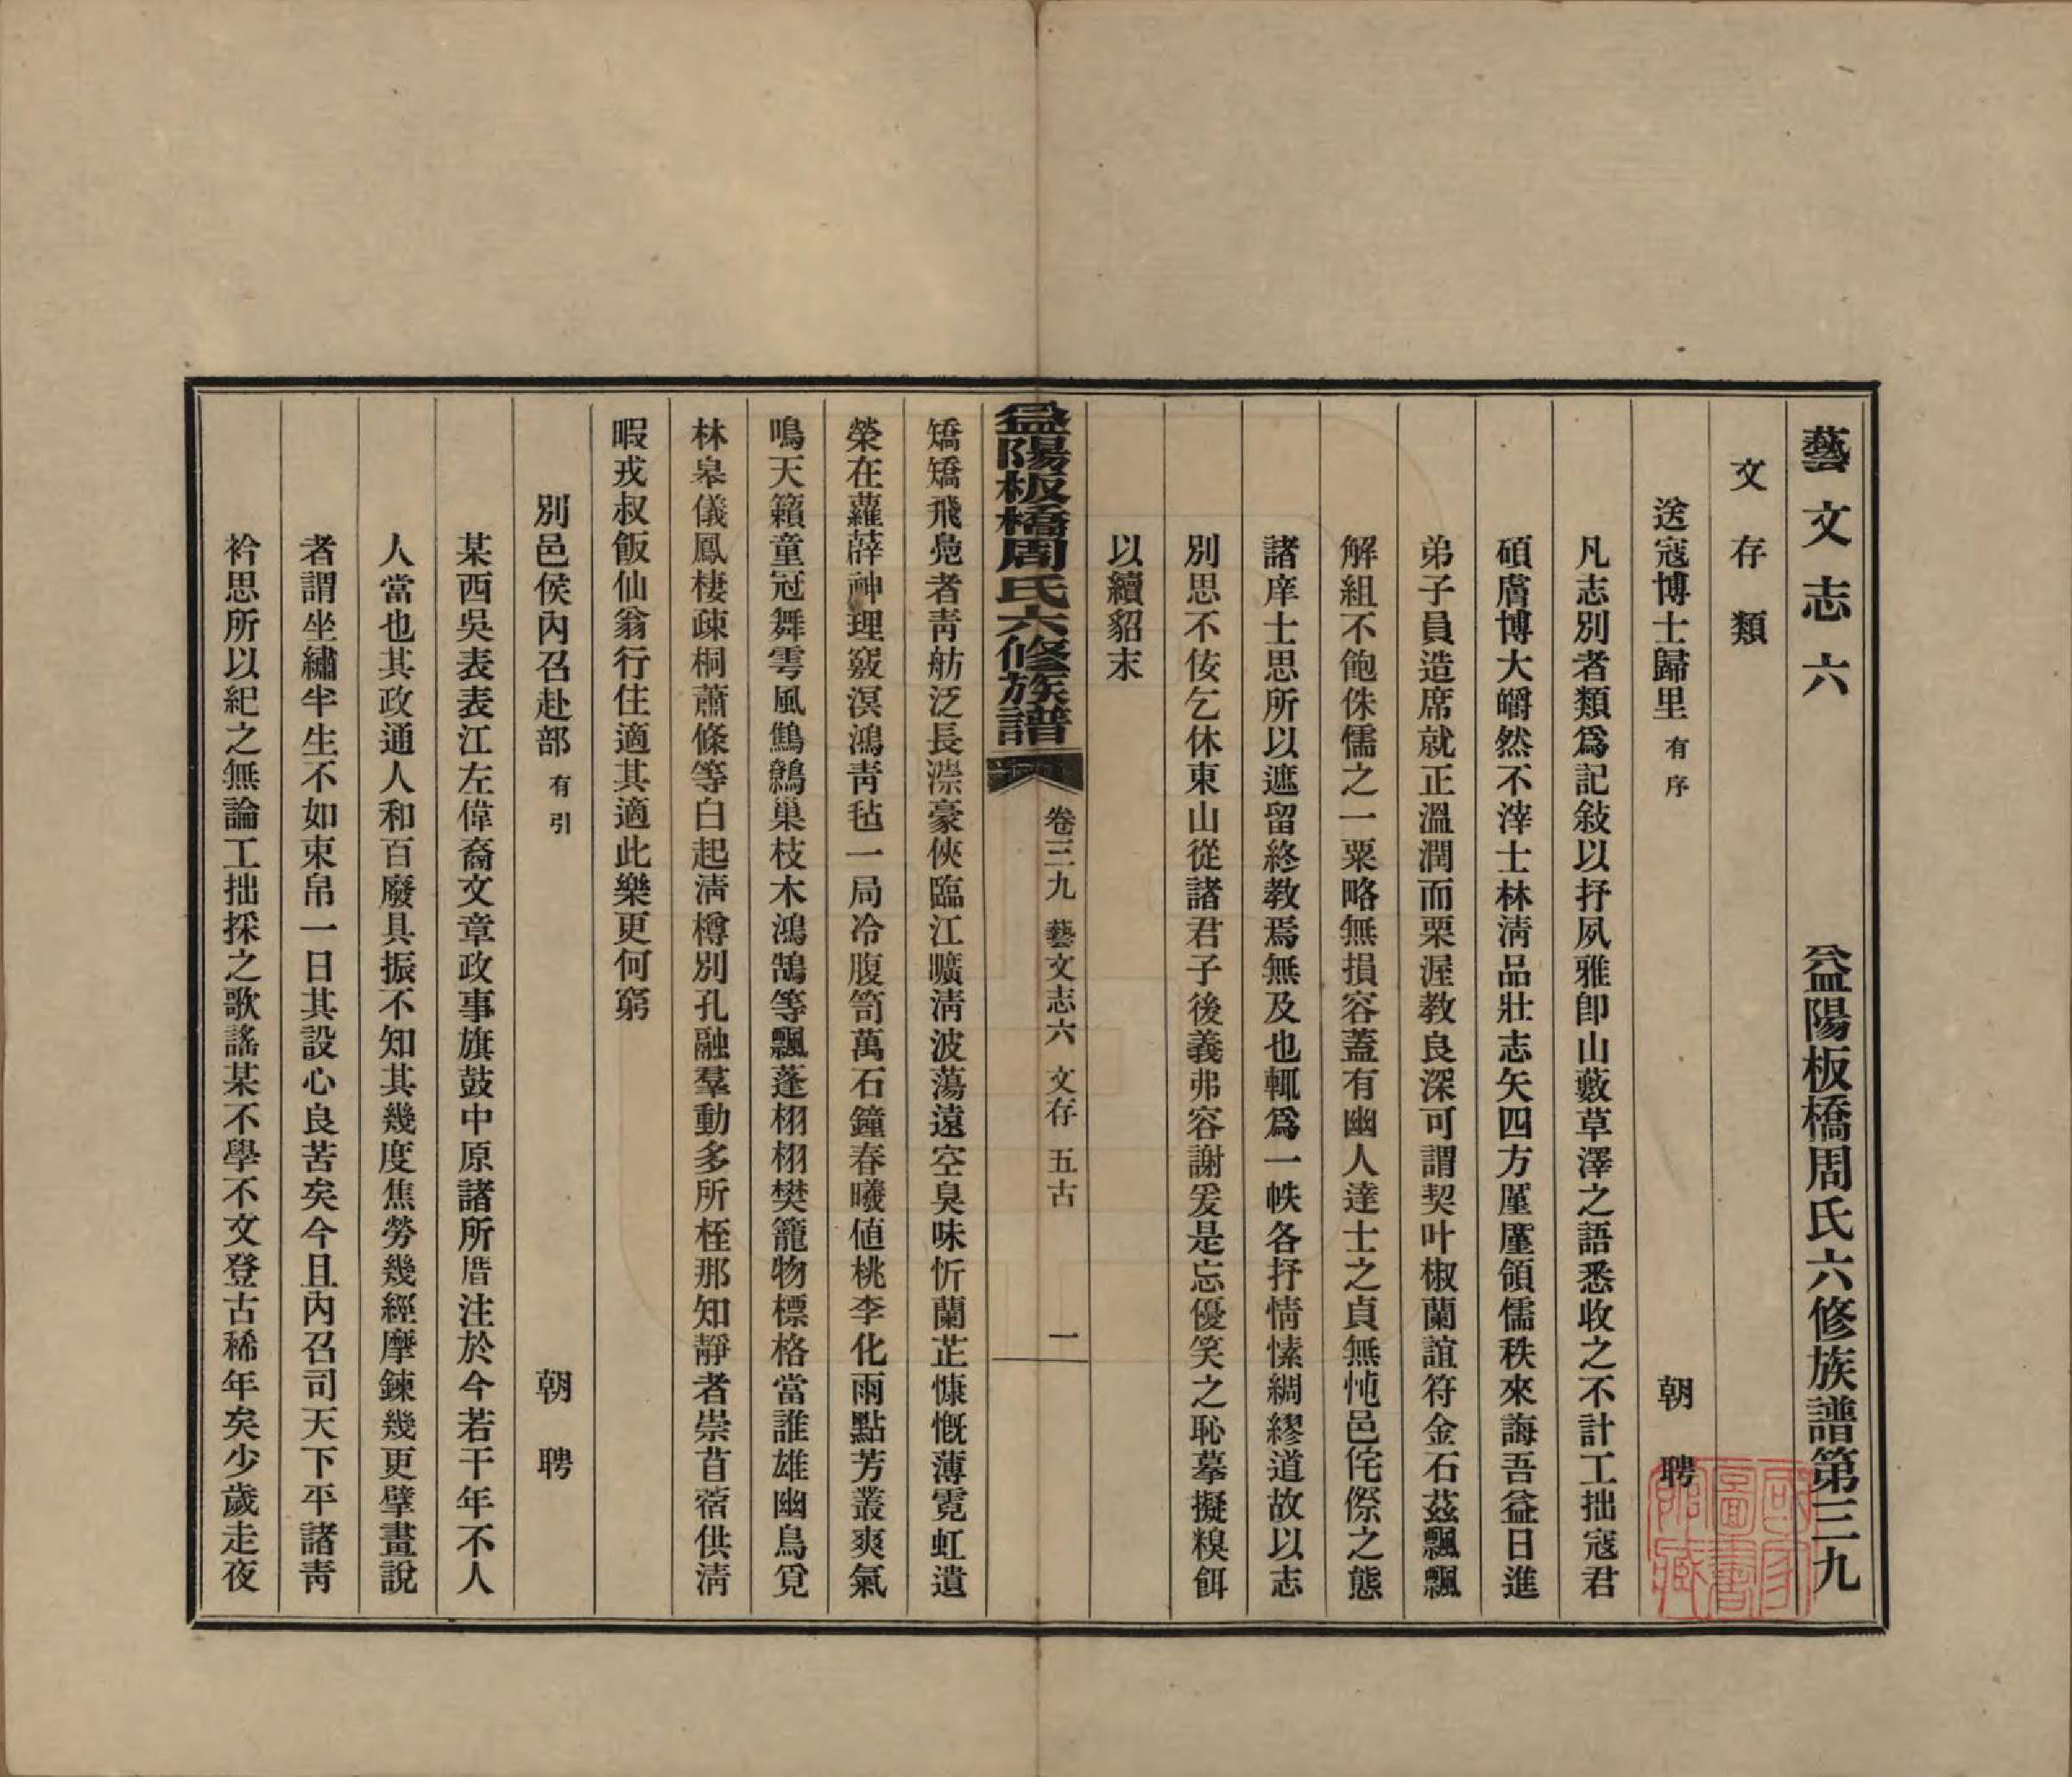 藝文志六　益陽板橋周氏六修族譜第三九
文存類
送寇博士歸里有序　朝聘
凡志別者類爲記敍以抒夙雅卽山藪草澤之語悉收之不計工拙寇君
碩膚博大皭然不滓士林淸品壯志矢四方厪厪領儒秩來誨吾益日進
弟子員造席就正溫潤而栗渥教良深可謂契叶椒蘭誼符金石茲飄飄
解組不飽侏儒之一粟略無損容蓋有幽人達士之貞無忳邑侘傺之態
諸庠士思所以遮留終教焉無及也輒爲一帙各抒情愫綢繆道故以志
別思不佞乞休東山從諸君子後義弗容謝爰是忘優笑之恥摹擬糗餌
以續貂末
益陽板橋周氏六修族譜　卷三九　藝文志六　文存　五古　一
矯矯飛鳧者靑舫泛長漴豪俠臨江曠淸波蕩遠空臭味忻蘭芷慷慨薄霓虹遺
榮在蘿薜神理竅溟鴻靑毡一局冷腹笥萬石鐘春曦値桃李化雨點芳叢爽氣
鳴天籟童冠舞雩風鷦鷯巢枝木鴻鵠等飄蓬栩栩樊籠物標格當誰雄幽鳥覓
林皋儀鳳棲疎桐蕭條等白起淸樽別孔融羣動多所桎那知靜者崇苜蓿供淸
暇戎叔飯仙翁行住適其適此樂更何窮
別邑侯內召赴部有引　朝聘
某西吳表表江左偉裔文章政事旗鼓中原諸所厝注於今若干年不人
人當也其政通人和百廢具振不知其幾度焦勞幾經摩鍊幾更擘畫說
者謂坐繡半生不如束帛一日其設心良苦矣今且內召司天下平諸靑
衿思所以紀之無論工拙採之歌謠某不學不文登古稀年矣少歲走夜